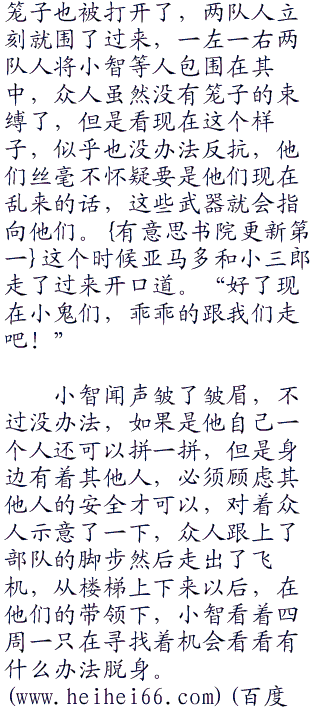 笼子也被打开了，两队人立
刻就围了过来，一左一右两
队人将小智等人包围在其
中，众人虽然没有笼子的束
缚了，但是看现在这个样
子，似乎也没办法反抗，他
们丝毫不怀疑要是他们现在
乱来的话，这些武器就会指
向他们。{有意思书院更新第
一}这个时候亚马多和小三郎
走了过来开口道。“好了现
在小鬼们，乖乖的跟我们走
吧！”
小智闻声皱了皱眉，不
过没办法，如果是他自己一
个人还可以拼一拼，但是身
边有着其他人，必须顾虑其
他人的安全才可以，对着众
人示意了一下，众人跟上了
部队的脚步然后走出了飞
机，从楼梯上下来以后，在
他们的带领下，小智看着四
周一只在寻找着机会看看有
什么办法脱身。
(www.heihei66.com)(百度